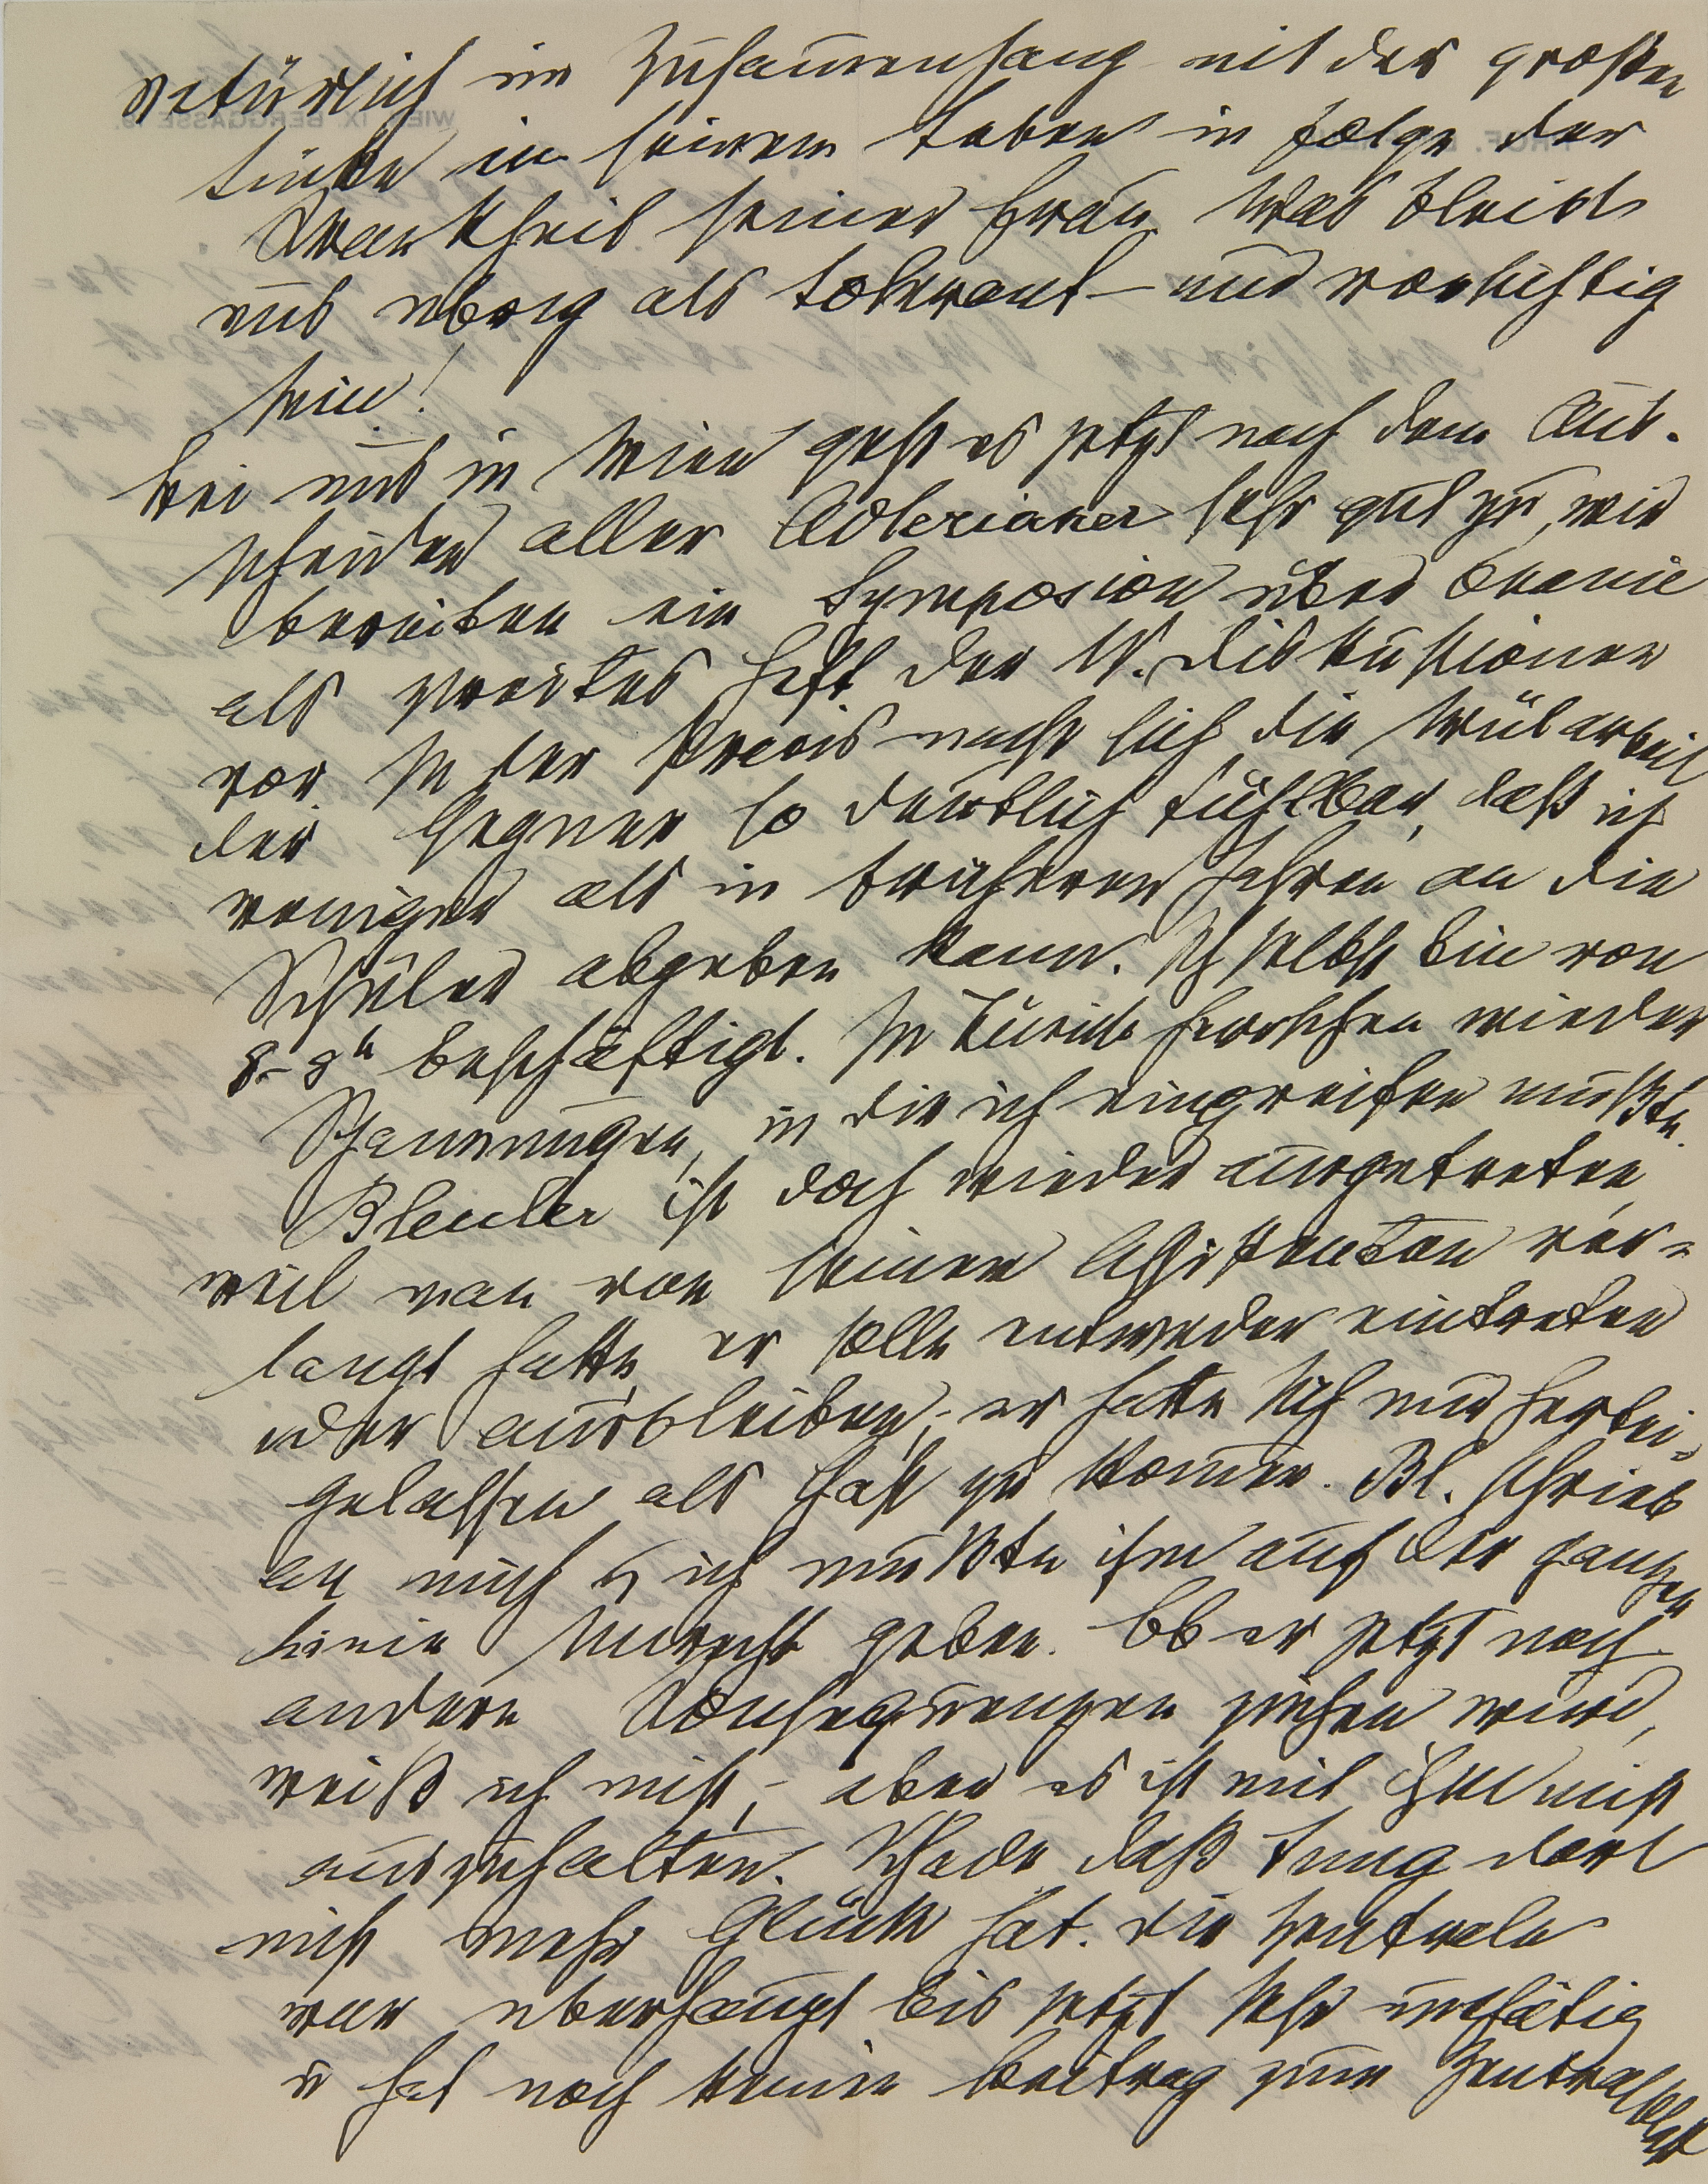 natürlich im Zusammenhang mit der großen
Lücke in seinem Leben in Folge der
Krankheit seiner Frau. Was bleibt
uns übrig als tolerant – und vorsichtig
sein!
Bei uns in Wien geht es jetzt nach dem Aus-
scheiden aller Adlerianer sehr gut zu, wir
bereiten ein Symposion über Onanie
als zweites Heft der W. Diskussionen
vor. In der Praxis macht sich die Wülarbeit
der Gegner so deutlich fühlbar, daß ich
weniger als in früheren Jahren an die
Schüler abgeben kann. Ich selbst bin von
8–8h beschäftigt. In Zürich herrschen wieder
Spannungen, in die ich eingreifen mußte.
Bleuler ist doch wieder ausgetreten,
weil man von seinen Assistenten ver-
langt hatte, er solle entweder eintreten
oder ausbleiben; er hatte sich nur herbei-
gelassen als Gast zu kommen. Bl. schrieb
an mich u ich mußte ihm auf der ganzen
Linie Unrecht geben. Ob er jetzt noch
andere Konsequenzen ziehen wird,
weiß ich nicht, – aber es ist mit ihm nicht
auszuhalten. Schade daß Jung dort
nicht mehr Glück hat. Die Zentrale
war überhaupt bis jetzt sehr untätig
u hat noch keinen Beitrag zum Zentralblatt
WIEN, IX. BERGGASSE 19.